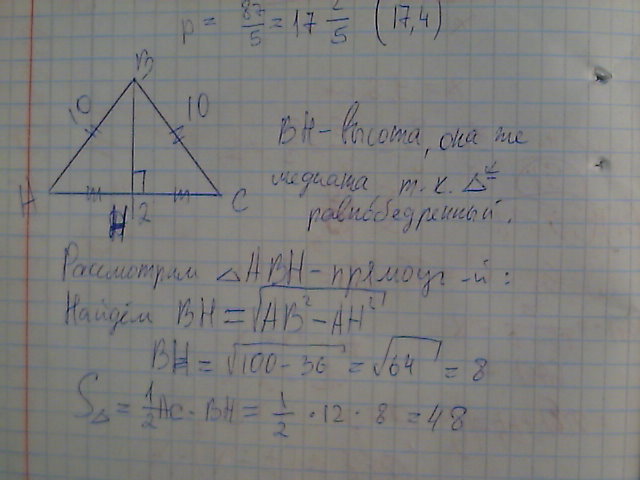 p = 87/5 = 17 2/5 (17,4)
B
10 10
A C
H 12
BH – высота, она же
медиата, т.к. Δ
равнобедренный.
Рассмотрим ΔABH – прямоуг -й :
Найдём BH = √AB² – AH²
BH = √100 – 36 = √64 = 8
S△ = 1/2 AC · BH = 1/2 · 12 · 8 = 48